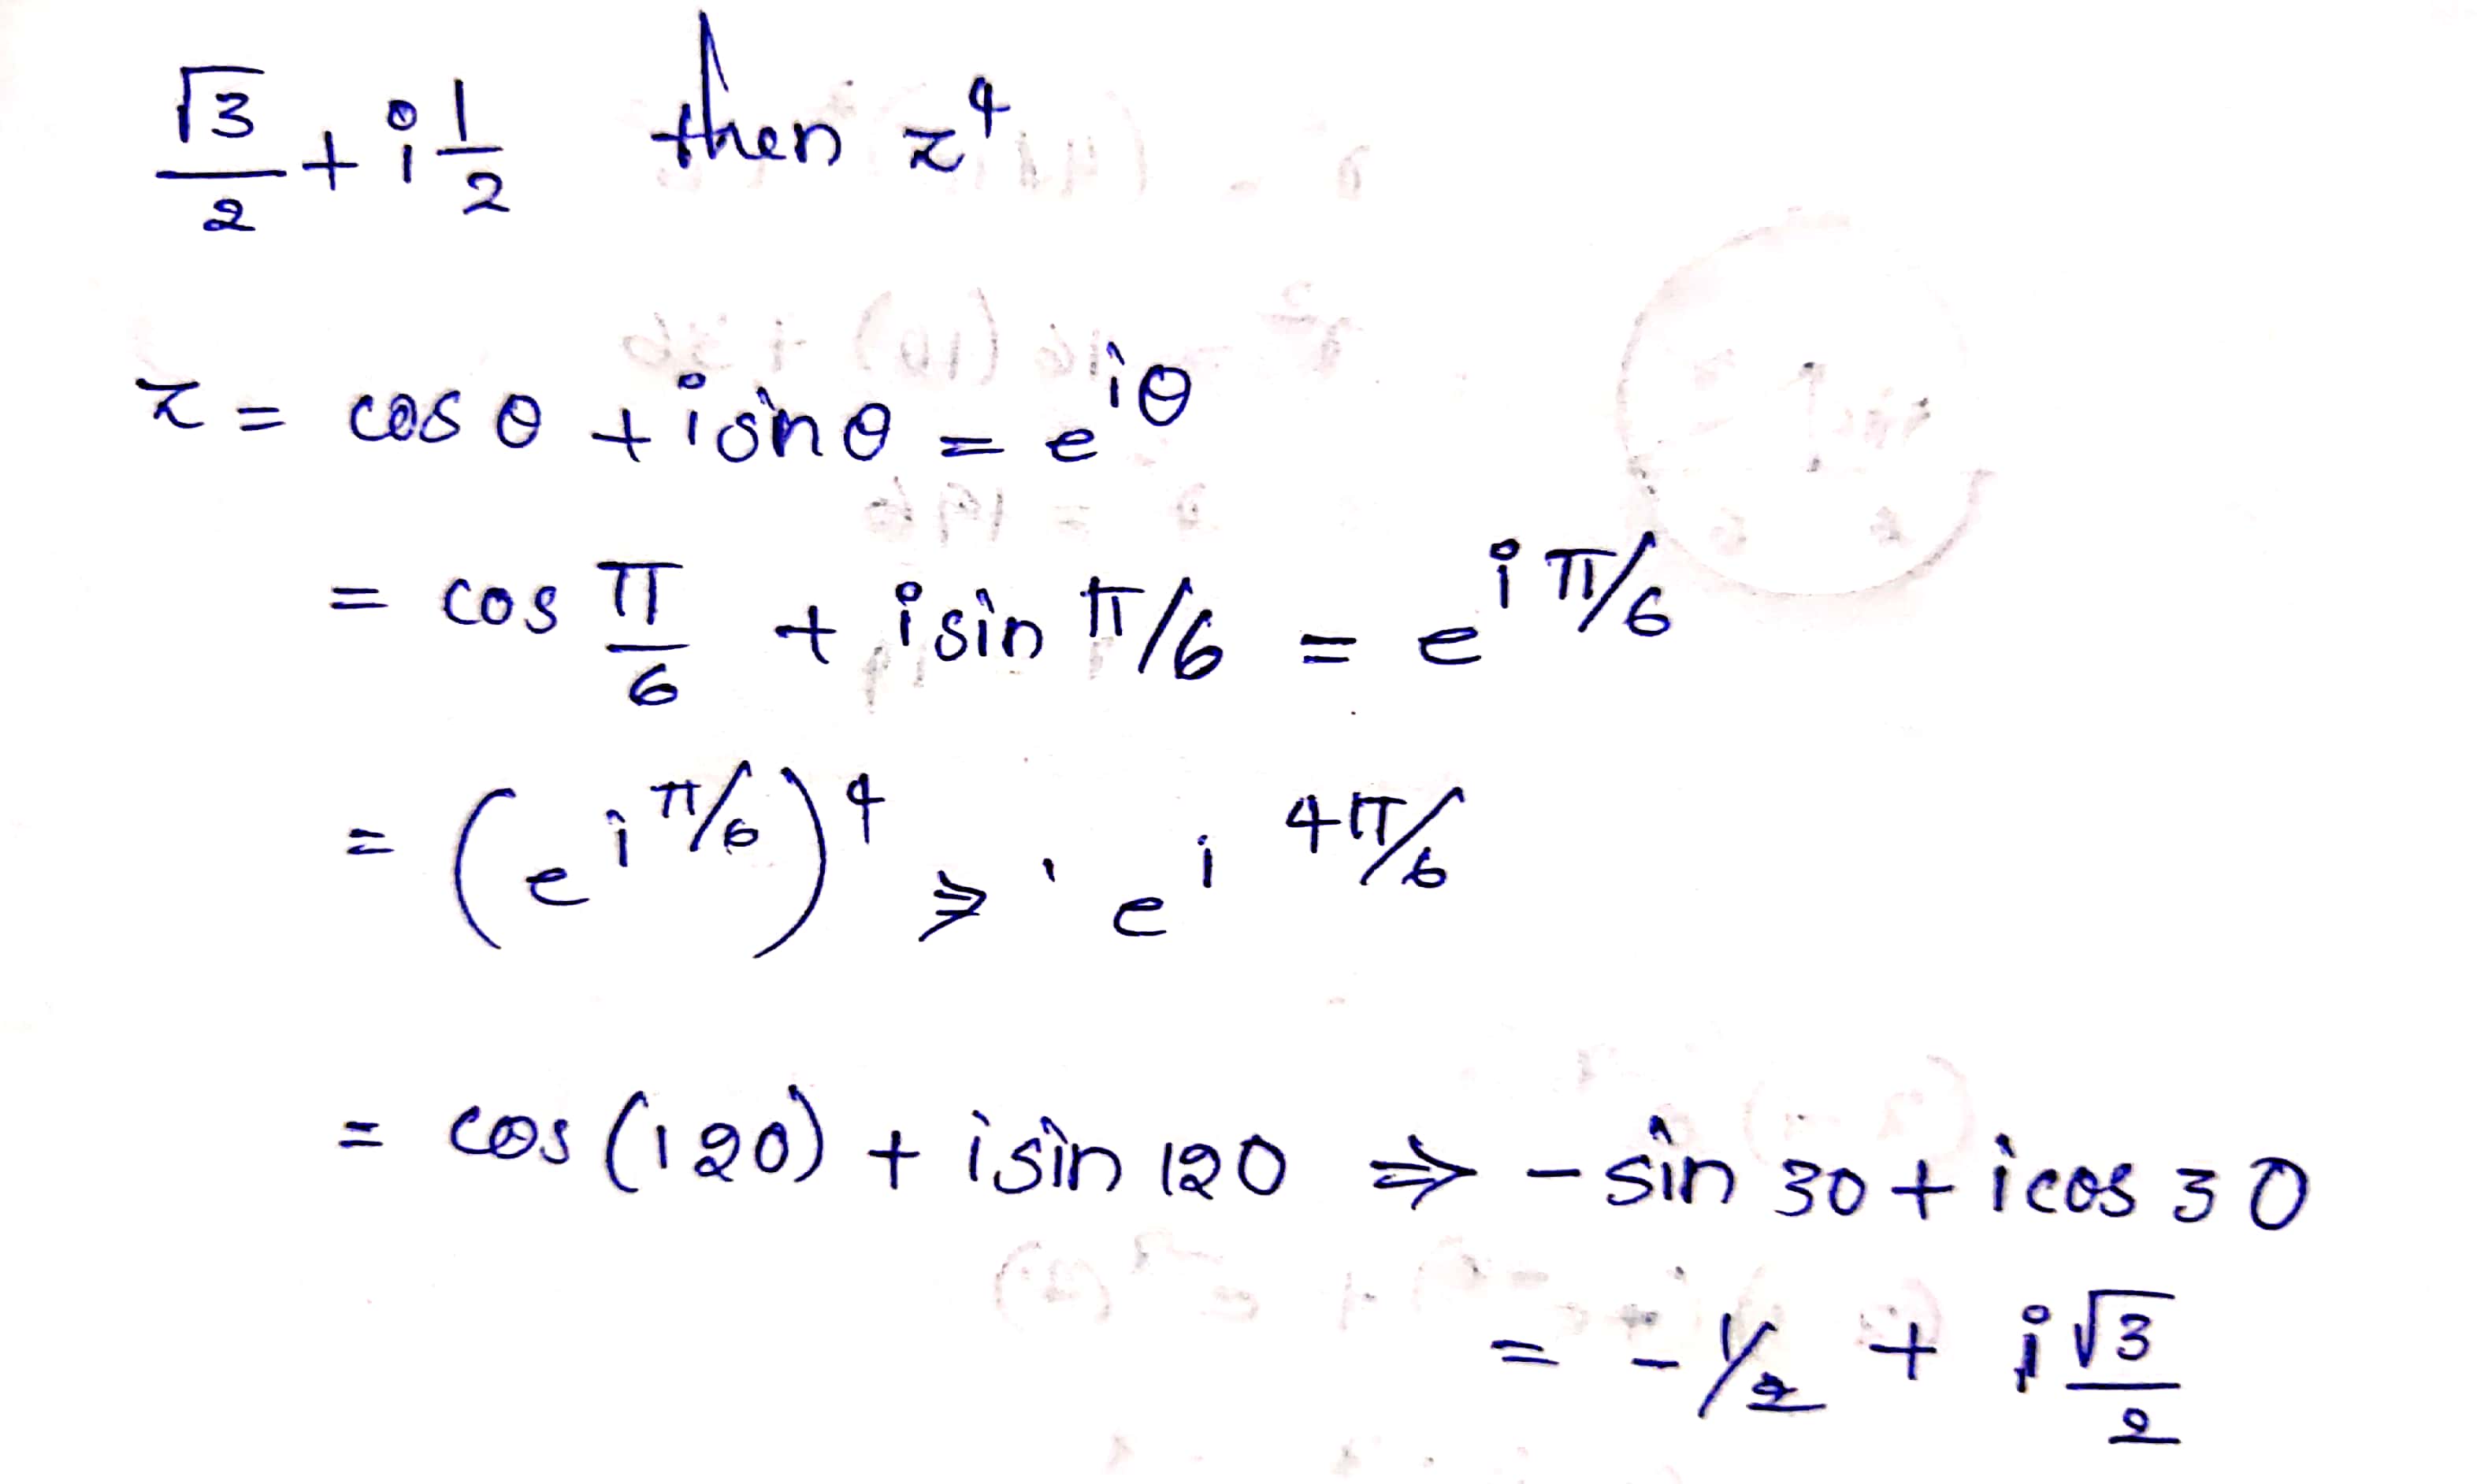 √3/2 + i 1/2 then z⁴
z = cos θ + i sin θ = e^{iθ}
= cos π/6 + i sin π/6 = e^{i π/6}
= (e^{i π/6})⁴ ⇒ e^{i 4π/6}
= cos (120) + i sin 120 ⇒ - sin 30 + i cos 30
= - 1/2 + i √3/2